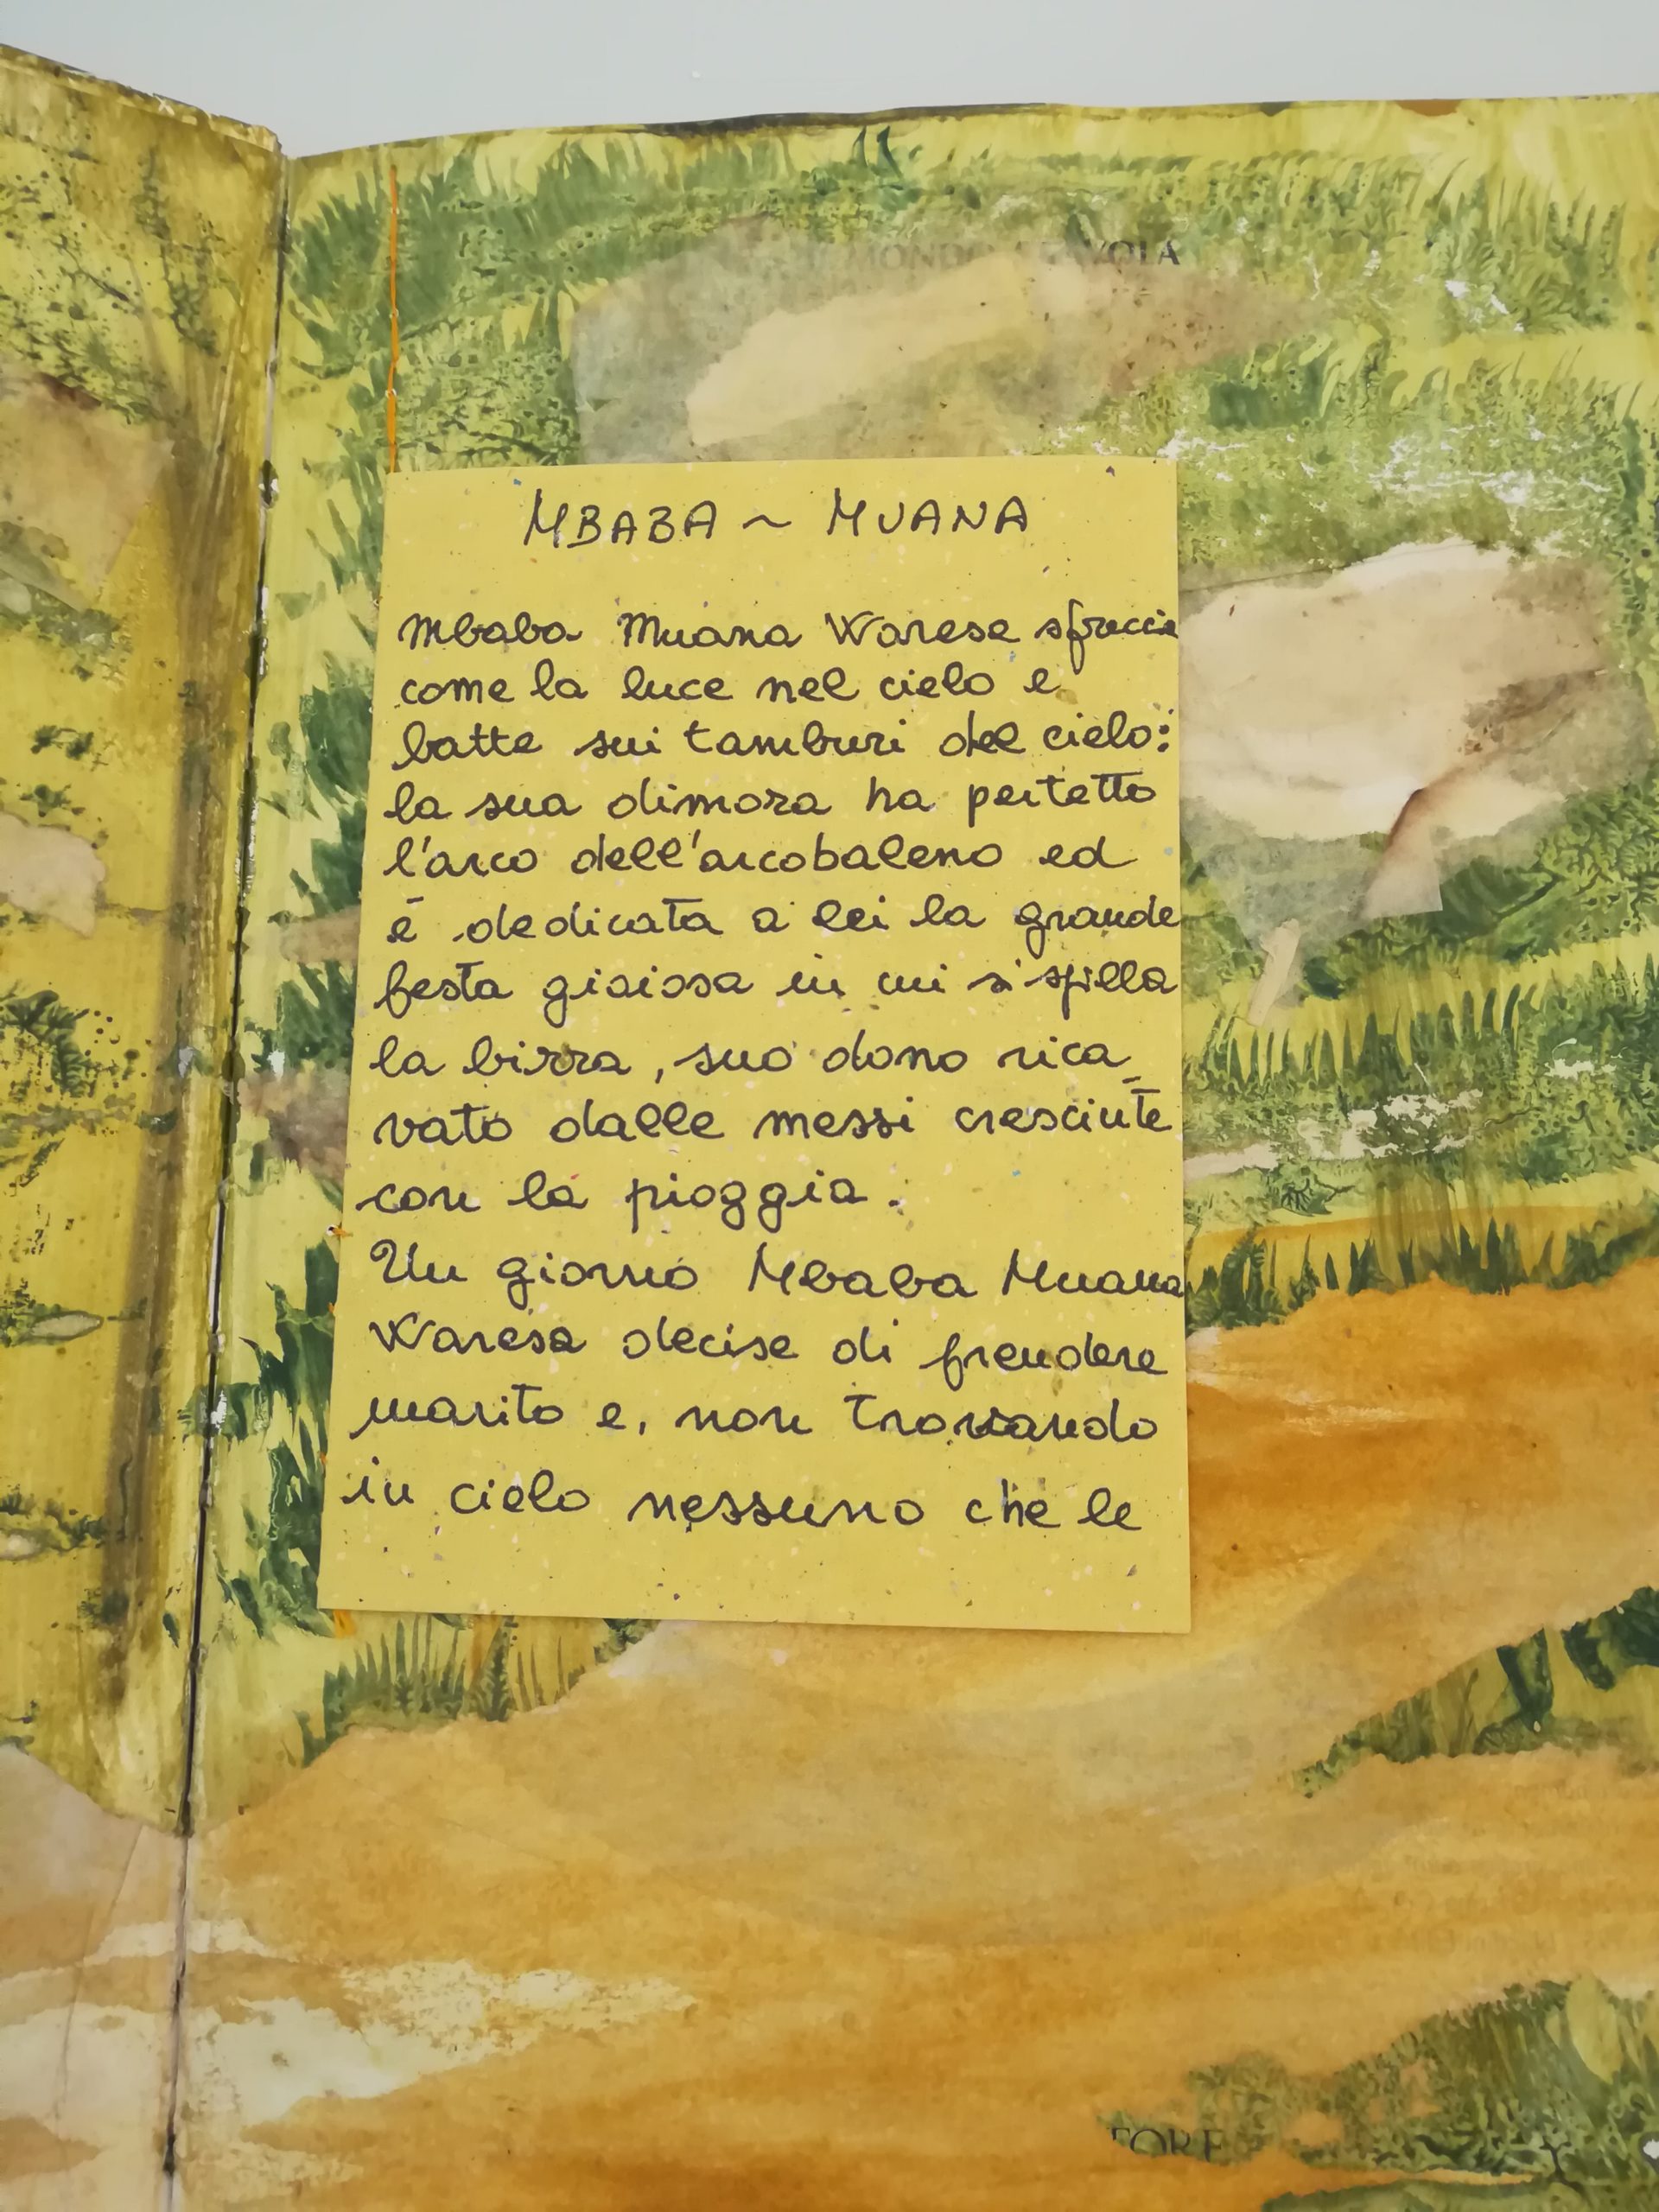 MONDO
VOLA
MBABA ~ MUANA
Mbaba Muana Warese sfreccia
come la luce nel cielo e
batte sui tamburi del cielo:
la sua dimora ha per tetto
l'arco dell'arcobaleno ed
è dedicata a lei la grande
festa gioiosa in cui si spilla
la birra, suo dono rica_
vato dalle messi cresciute
con la pioggia.
Un giorno Mbaba Muana
Waresa decise di prendere
marito e, non trovando
in cielo nessuno che le
TORE